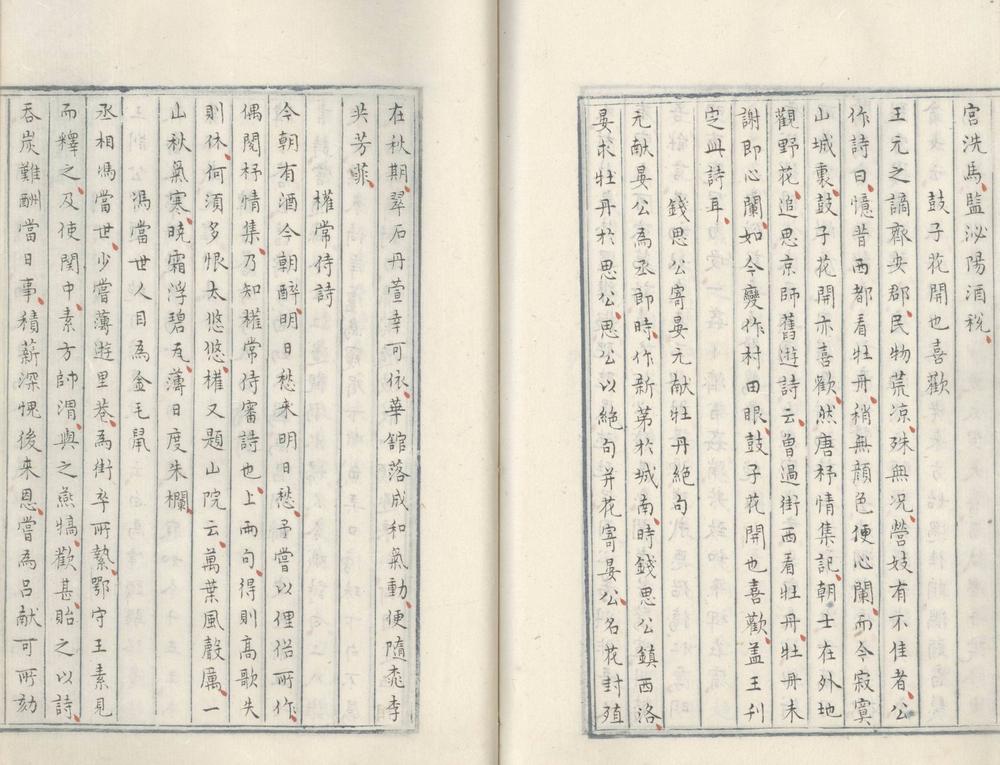 宫洗馬監泌陽酒税
鼓子花開也喜歡
王元之謫齊安郡民物荒凉殊無况營妓有不佳者公
作詩曰憶昔西都看牡丹稍無顔色便心闌而今寂寞
山城裏鼓子花開亦喜歡然唐杼情集記朝士在外地
觀野花追思京師舊遊詩云曽過街西看牡丹牡丹未
謝即心闌如今變作村田眼鼓子花開也喜歡盖王刋
定此詩耳
錢思公寄晏元献牡丹絶句
元献晏公為丞郎時作新第於城南時錢思公鎮西洛
晏求牡丹於思公思公以絶句并花寄晏公名花封殖
在秋期翠石丹萱幸可依華舘落成和氣動便隨桃李
共芳菲
權常侍詩
今朝有酒今朝醉明日愁来明日愁予嘗以俚俗所作
偶閱杼情集乃知權常侍審詩也上兩句得則髙歌失
則休何須多恨太悠悠權又題山院云萬葉風聲厲一
山秋氣寒曉霜浮碧瓦薄日度朱欄
馮當世人目為金毛鼠
丞相馮當世少嘗薄遊里巷為街卒所縶鄂守王素見
而釋之及使関中素方帥渭與之燕犒歡甚貽之以詩
吞炭難酬當日事積薪深愧後来恩嘗為吕献可所劾